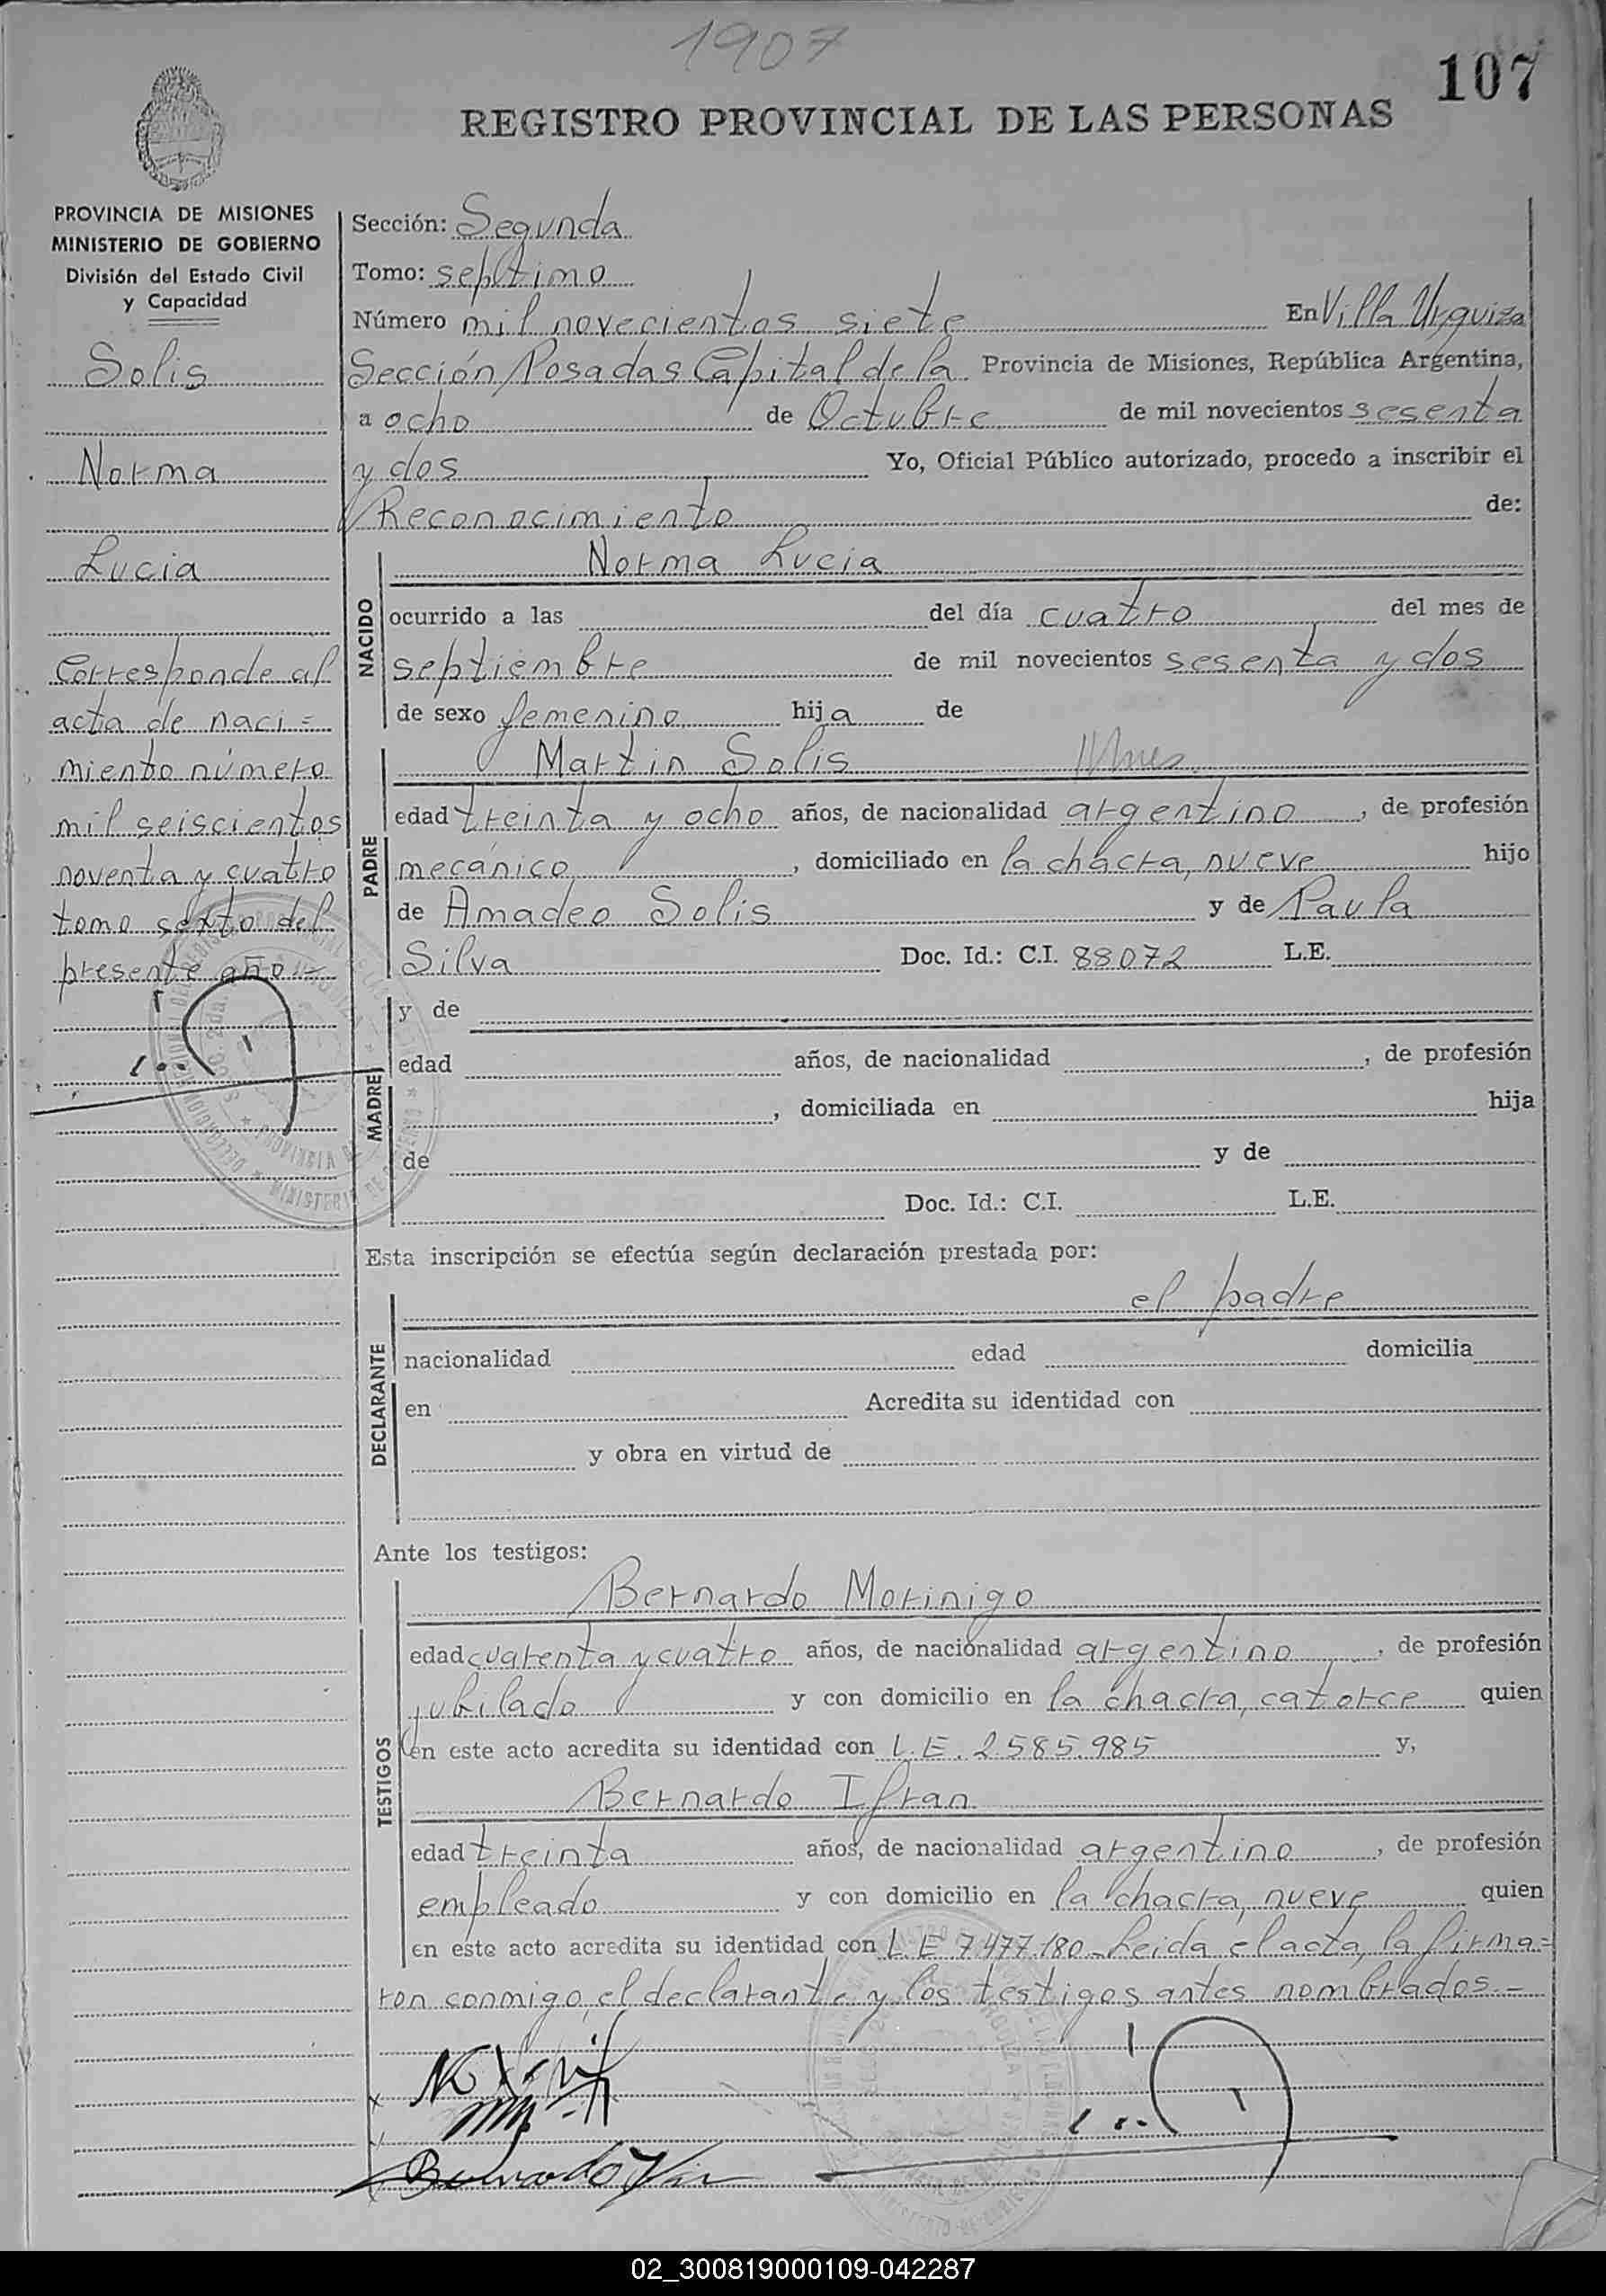 1907
107
REGISTRO PROVINCIAL DE LAS PERSONAS
PROVINCIA DE MISIONES
MINISTERIO DE GOBIERNO
División del Estado Civil
y Capacidad
Solis
Norma
Lucia
Corresponde al
acta de naci=
miento número
mil seiscientos
noventa y cuatro
tomo sexto del
presente año.-
Sección: Segunda
Tomo: septimo
Número mil novecientos siete En Villa Urquiza
Sección Posadas Capital de la Provincia de Misiones, República Argentina,
a ocho de Octubre de mil novecientos sesenta
y dos Yo, Oficial Público autorizado, procedo a inscribir el
Reconocimiento de:
NACIDO
Norma Lucia
ocurrido a las del día cuatro del mes de
septiembre de mil novecientos sesenta y dos
de sexo femenino hija de
PADRE
Martin Solis
edad treinta y ocho años, de nacionalidad argentino, de profesión
mecánico, domiciliado en la chacra, nueve hijo
de Amadeo Solis y de Paula
Silva Doc. Id.: C.I. 88072 L.E.
MADRE
y de
edad años, de nacionalidad , de profesión
, domiciliada en hija
de y de
Doc. Id.: C.I. L.E.
Esta inscripción se efectúa según declaración prestada por:
DECLARANTE
el padre
nacionalidad edad domicilia
en Acredita su identidad con
y obra en virtud de
Ante los testigos:
TESTIGOS
Bernardo Morinigo
edad cuarenta y cuatro años, de nacionalidad argentino, de profesión
jubilado y con domicilio en la chacra, catorce quien
en este acto acredita su identidad con L.E. 2.585.985 y,
Bernardo Ifran
edad treinta años, de nacionalidad argentino, de profesión
empleado y con domicilio en la chacra, nueve quien
en este acto acredita su identidad con L.E 7.477.180-Leida el acta, la firma=
ron conmigo, el declarante y los testigos antes nombrados.=
02_300819000109-042287